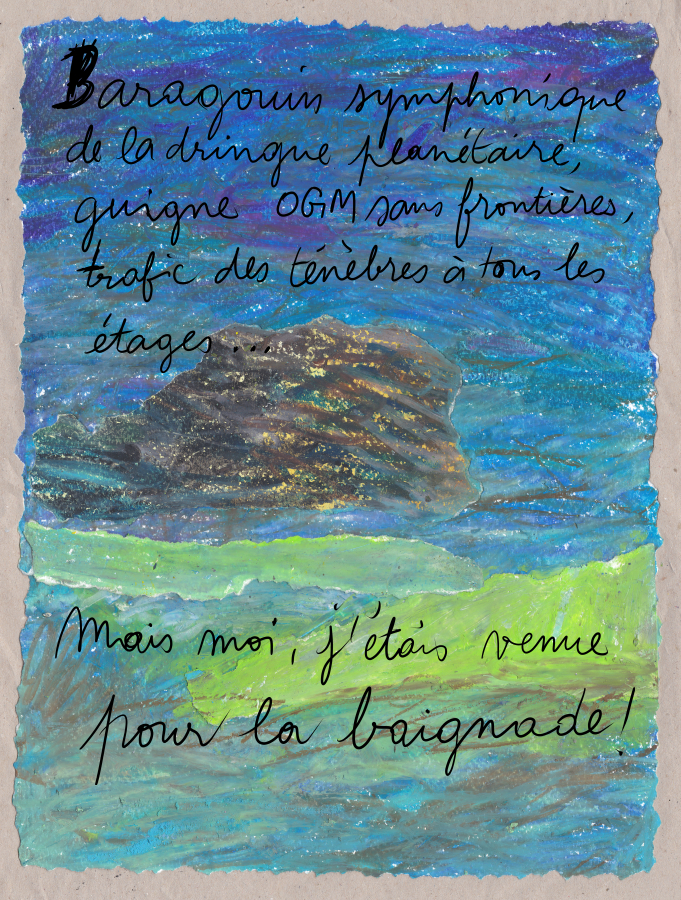 Baragouin symphonique
de la dringue planétaire,
guigne OGM sans frontières,
trafic des ténèbres à tous les
étages...
Mais moi, j'étais venue
pour la baignade!